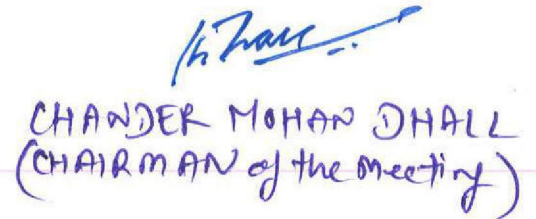 CHANDER MOHAN DHALL
(CHAIRMAN of the meeting)